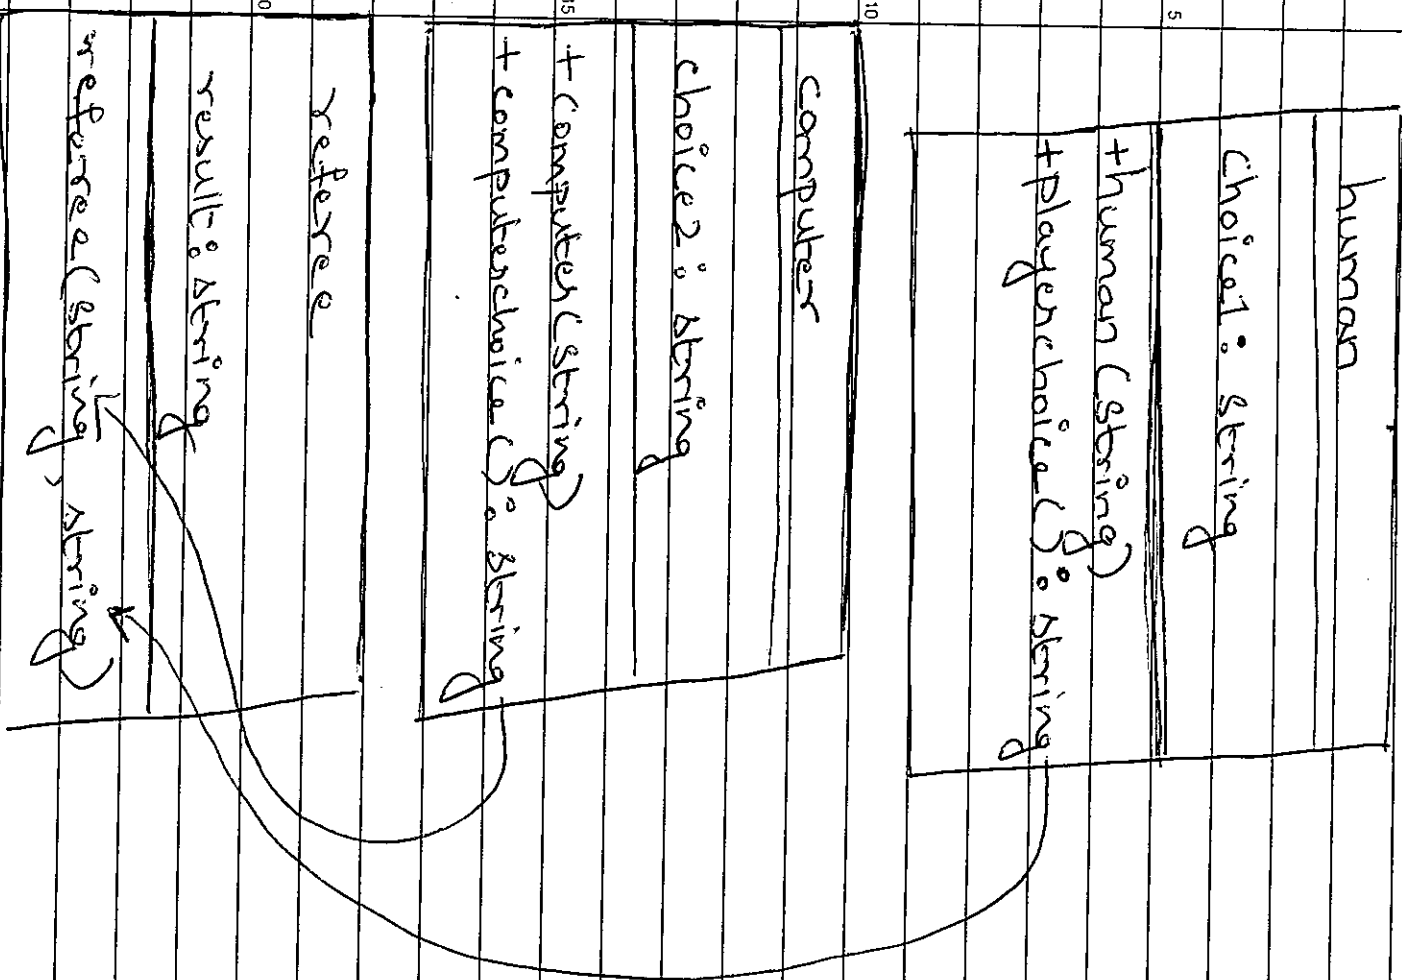 5
human
choice1: string
+human(string)
+playerchoice(): string
10
computer
choice2: string
+computer(string)
+computerchoice(): string
15
referee
result: string
referee(string, string)